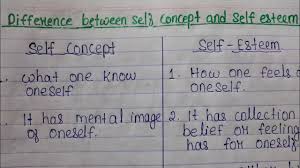 Difference between self concept and self esteem
Self Concept
Self-Esteem
. what one know
oneself
1. How one feels
oneself.
. It has mental image
of oneself.
2. It has collection
belief or feeling
has for oneself